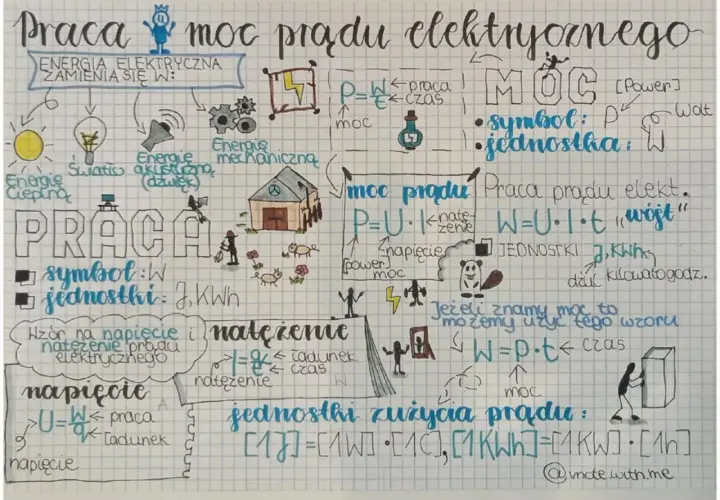 Praca i moc prądu elektrycznego
ENERGIA ELEKTRYCZNA
ZAMIENIA SIĘ W:
Energię
cieplną
Światło
Energię
akustyczną
(dźwięk)
Energię
mechaniczną
P=W/t
praca
czas
moc
MOC [Power]
• symbol: P
• jednostka: W
Wolt
PRACA
symbol: W
jednostki: J, KWh
moc prądu
P=U·I
natężenie
napięcie
[power]
moc
Praca prądu elekt.
W=U·I·t "wójt"
JEDNOSTKI J, KWh
dżul kilowatogodz.
Wzór na napięcie i
natężenie prądu
elektrycznego
natężenie
I=q/t
ładunek
czas
natężenie
napięcie
U=W/q
praca
ładunek
napięcie
Jeżeli znamy moc to
możemy użyć tego wzoru
W=P·t
czas
moc
jednostki zużycia prądu:
[1J]=[1W]·[1C], [1KWh]=[1KW]·[1h]
@vnote.with.me